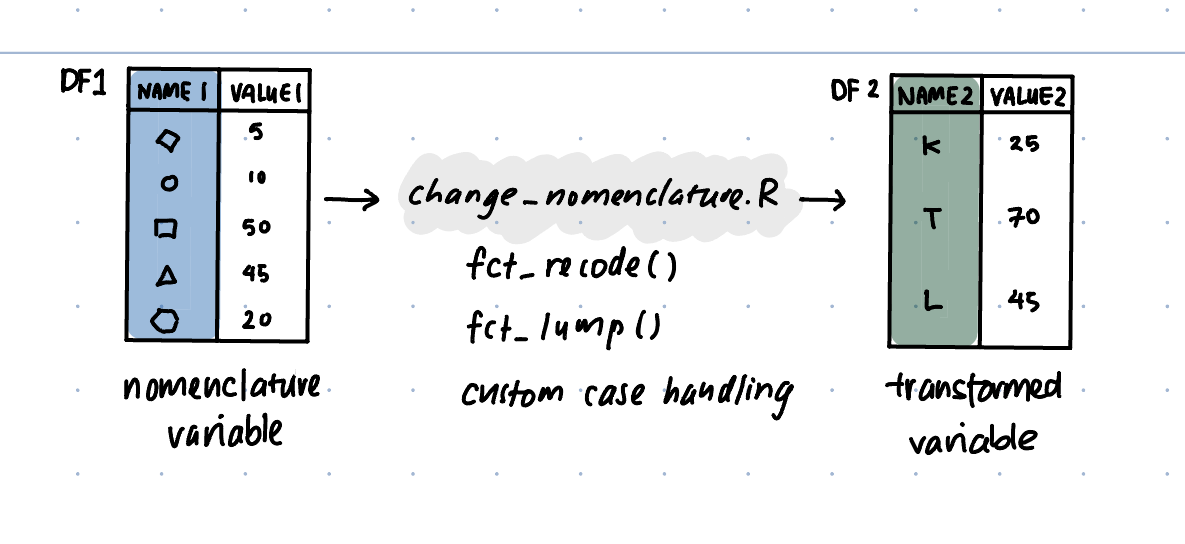 DF1
NAME 1 VALUE1
5
10
50
45
20
nomenclature
variable
change_nomenclature.R
fct_recode()
fct_lump()
custom case handling
DF 2
NAME2 VALUE2
K 25
T 70
L 45
transformed
variable